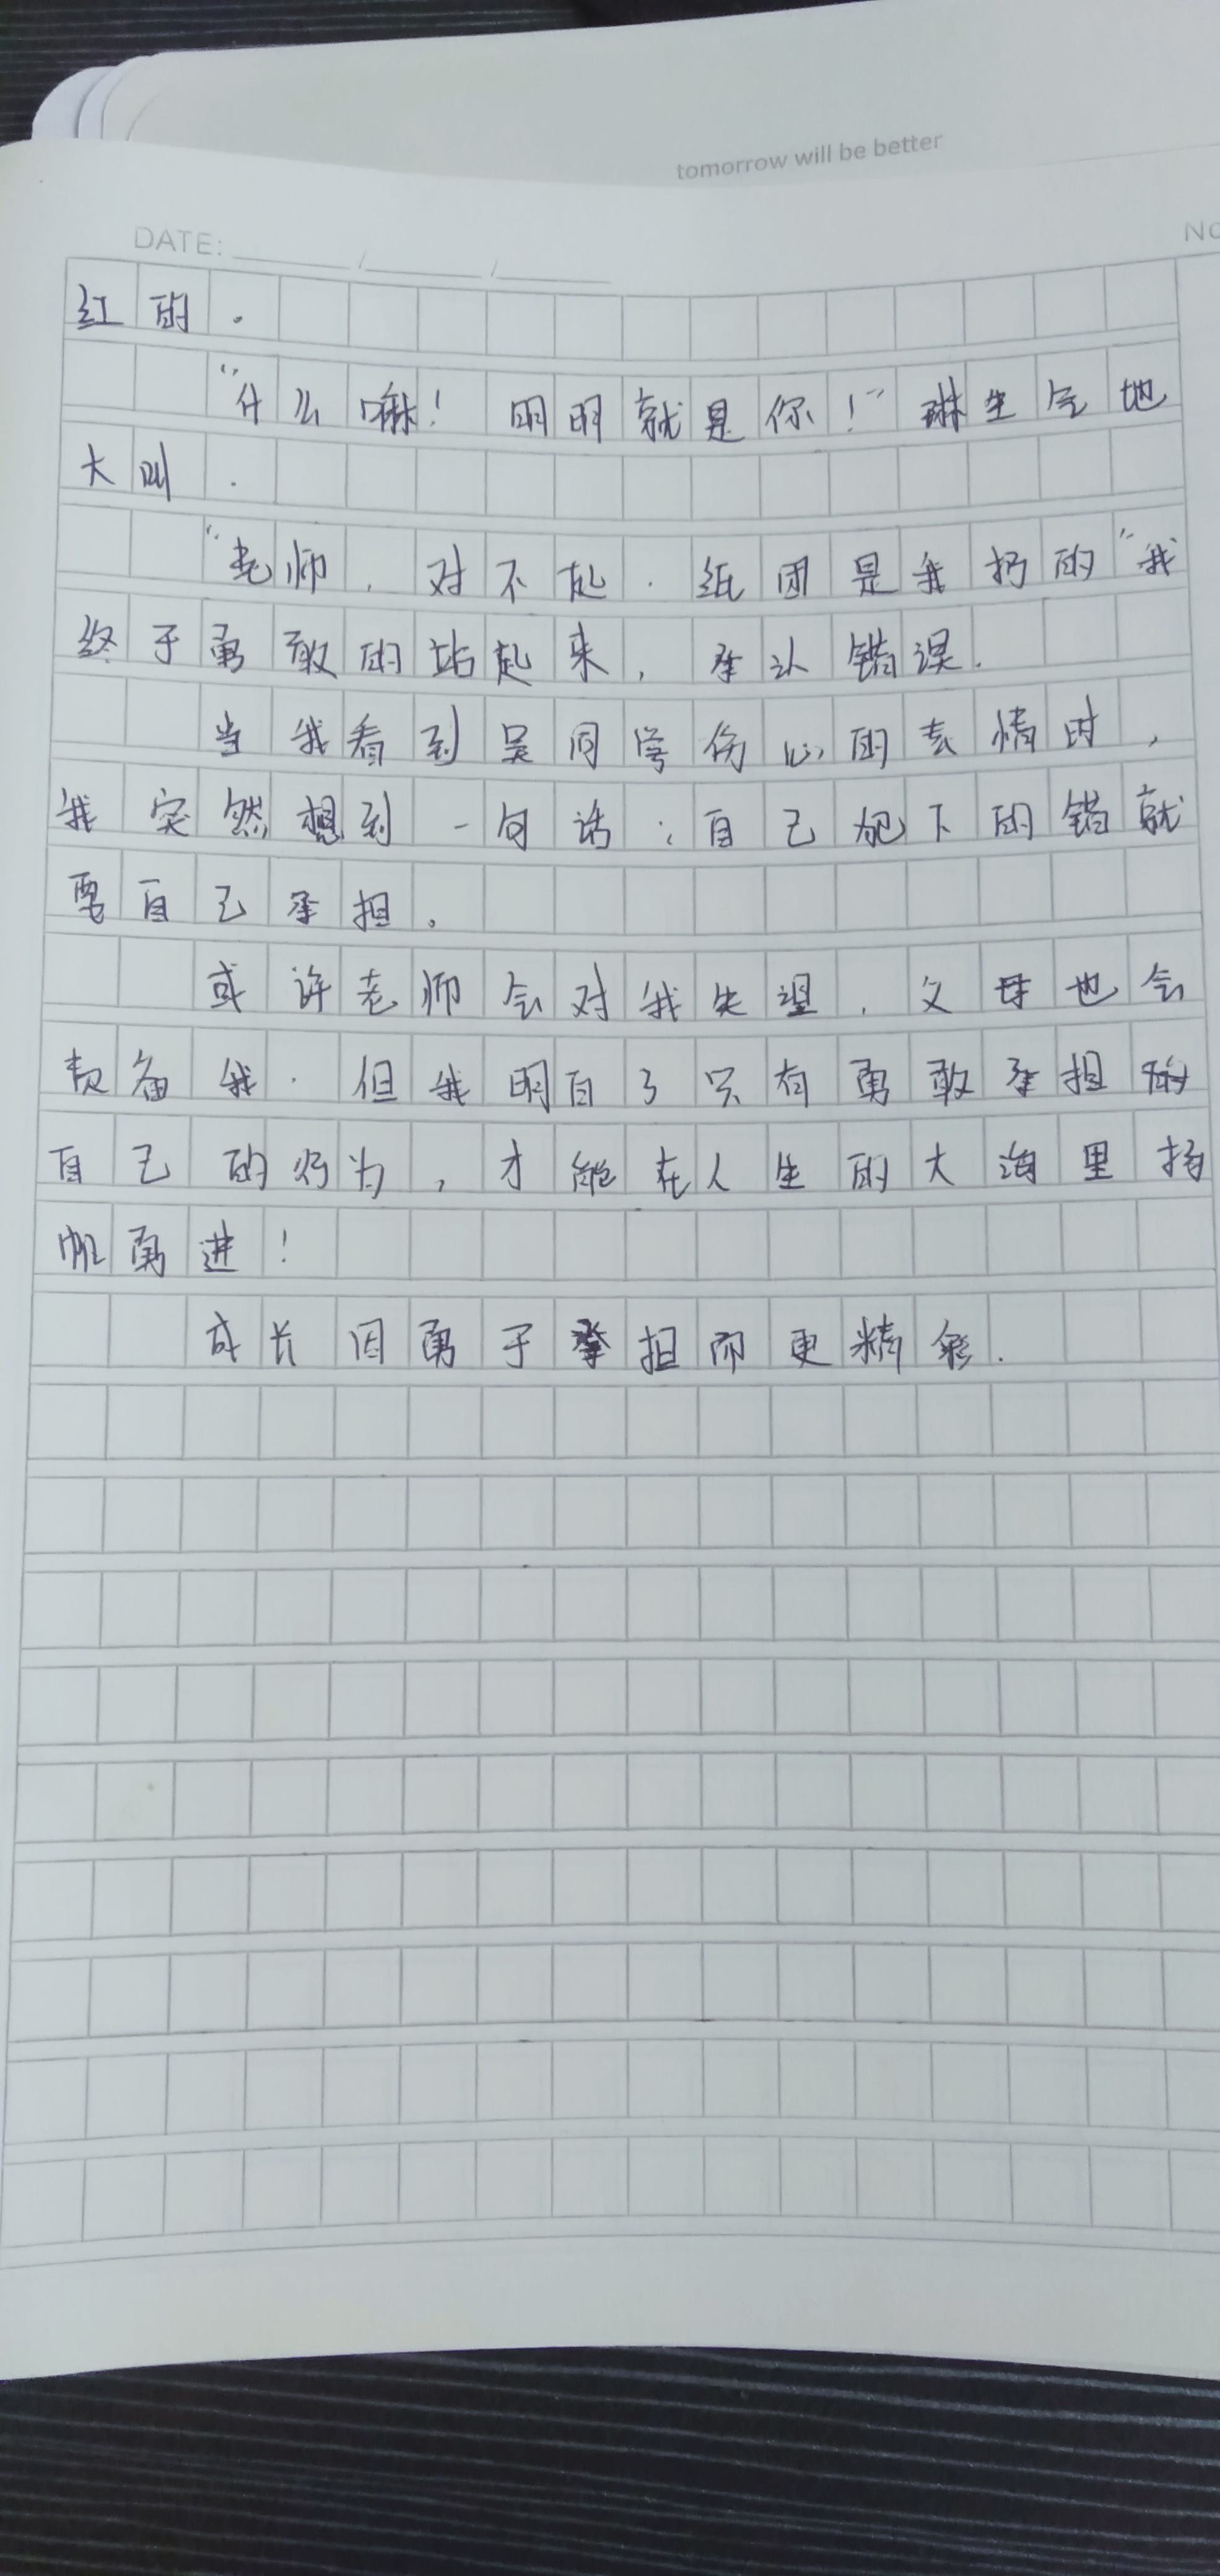 tomorrow will be better
DATE: / /
No
红的。
“什么嘛！明明就是你！”琳生气地
大叫.
“老师，对不起.纸团是我扔的“我
终于勇敢的站起来，承认错误.
当我看到吴同学伤心的表情时，
我突然想到一句话：自己犯下的错就
要自己承担。
或许老师会对我失望，父母也会
责备我.但我明白了只有勇敢承担
自己的行为，才能在人生的大海里扬
帆勇进！
成长因勇于承担而更精彩.